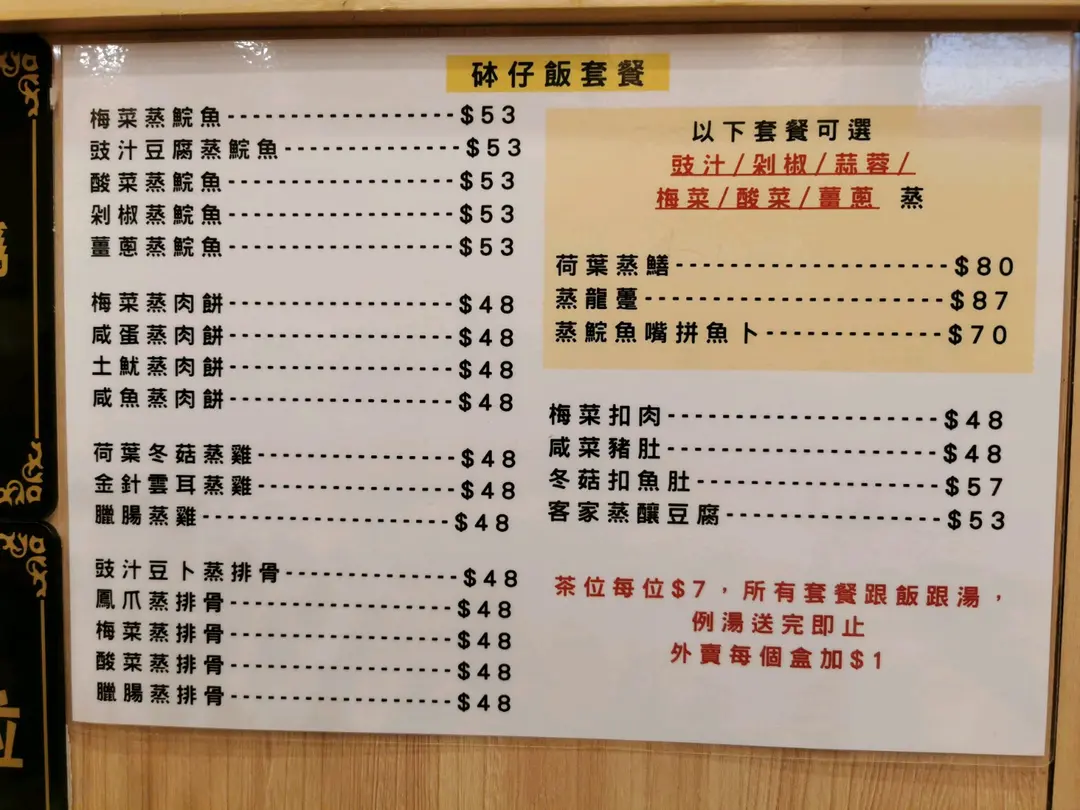 砵仔飯套餐
梅菜蒸鯇魚--------------------$53
豉汁豆腐蒸鯇魚----------------$53
酸菜蒸鯇魚--------------------$53
剁椒蒸鯇魚--------------------$53
薑蔥蒸鯇魚--------------------$53
梅菜蒸肉餅--------------------$48
咸蛋蒸肉餅--------------------$48
土魷蒸肉餅--------------------$48
咸魚蒸肉餅--------------------$48
荷葉冬菇蒸雞------------------$48
金針雲耳蒸雞------------------$48
臘腸蒸雞----------------------$48
豉汁豆卜蒸排骨----------------$48
鳳爪蒸排骨--------------------$48
梅菜蒸排骨--------------------$48
酸菜蒸排骨--------------------$48
臘腸蒸排骨--------------------$48
以下套餐可選
豉汁/剁椒/蒜蓉/
梅菜/酸菜/薑蔥 蒸
荷葉蒸鱔----------------------$80
蒸龍躉------------------------$87
蒸鯇魚嘴拼魚卜--------------$70
梅菜扣肉----------------------$48
咸菜豬肚----------------------$48
冬菇扣魚肚--------------------$57
客家蒸釀豆腐------------------$53
茶位每位$7，所有套餐跟飯跟湯，
例湯送完即止
外賣每個盒加$1